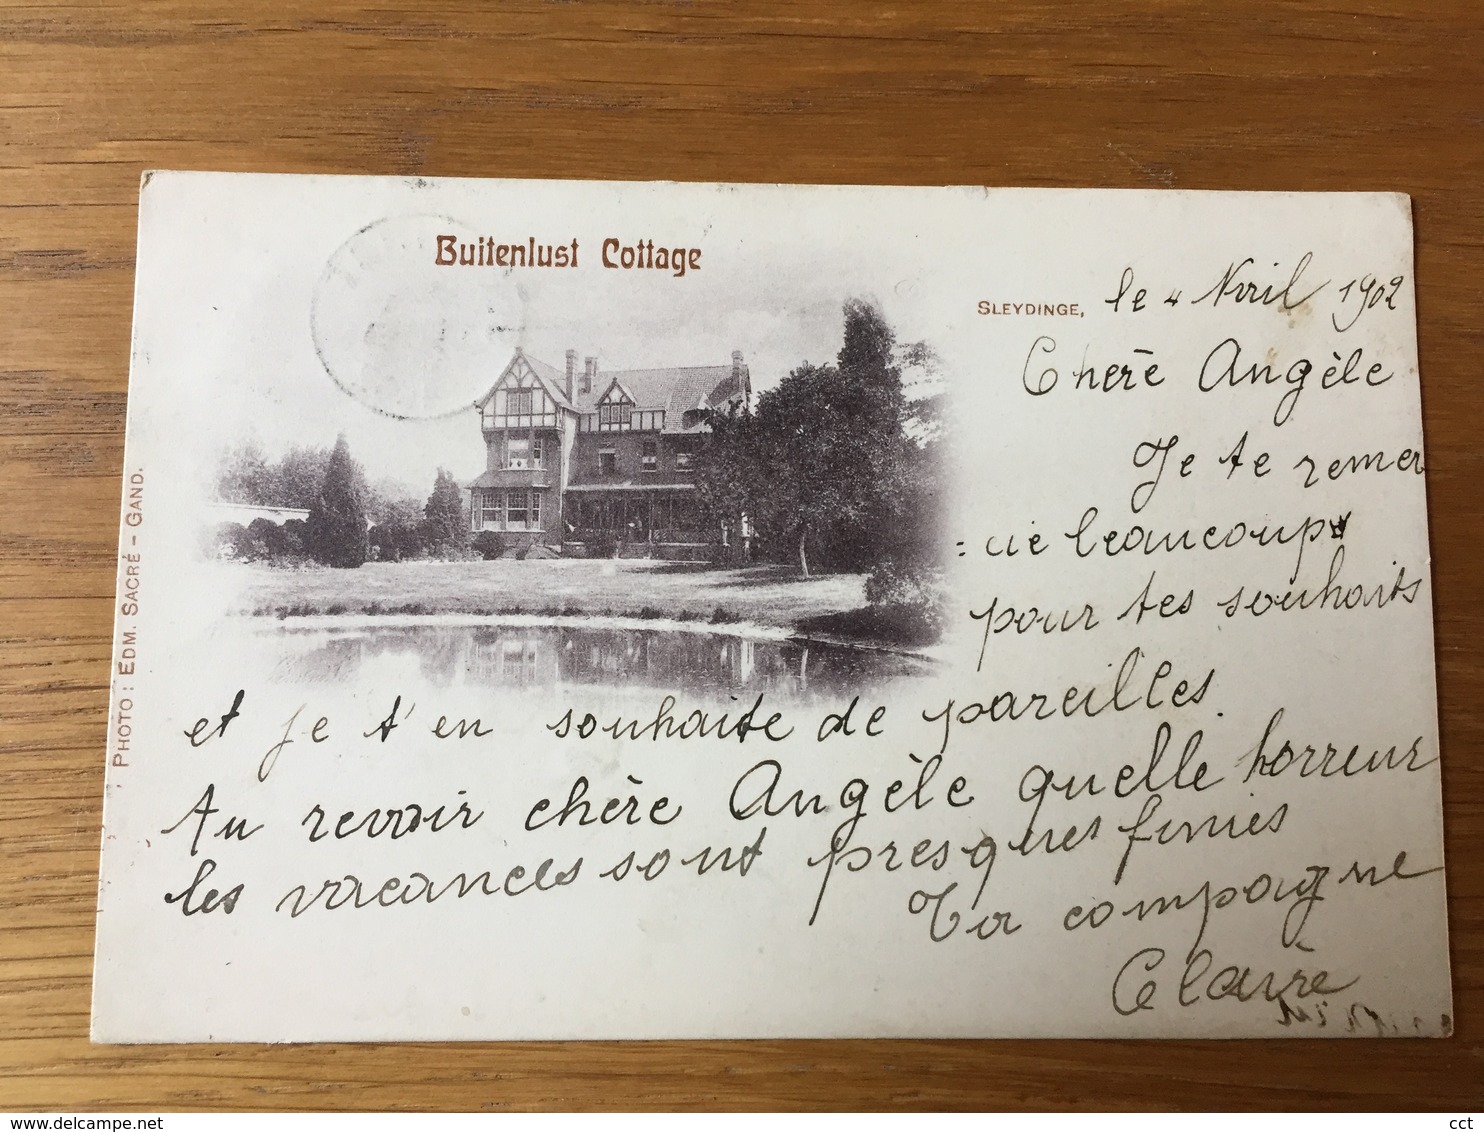 Buitenlust Cottage
SLEYDINGE, le 4 Avril 1902
Chère Angèle
Je te remer
=cie beaucoup
pour tes souhaits
et je t'en souhaite de pareilles.
Au revoir chère Angèle quelle horreur
les vacances sont presques finies
Ta compagne
Claire
PHOTO: EDM. SACRÉ - GAND.
delcampe.net
cct